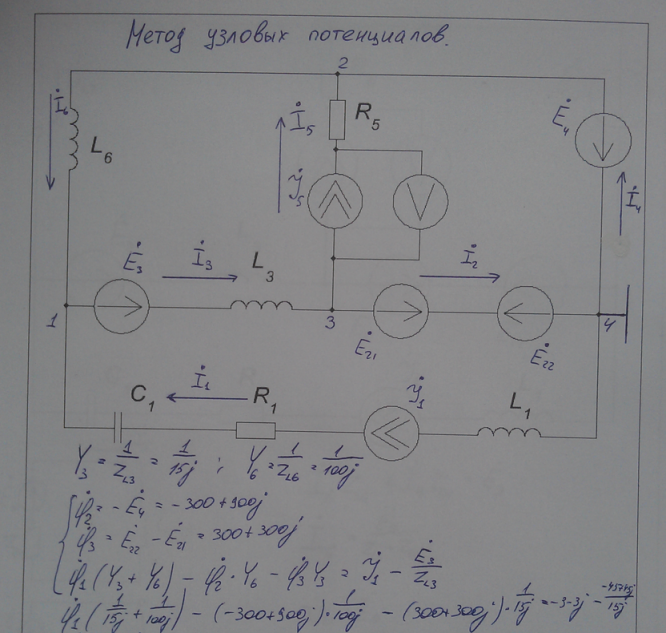 Метод узловых потенциалов.
2
İ₆
L₆
İ₅
R₅
J̇₅
V
Ė₄
İ₄
Ė₃
İ₃
L₃
İ₂
1
3
Ė₂₁
Ė₂₂
4
C₁
İ₁
R₁
J̇₁
L₁
Y₃ = 1/Z_L3 = 1/15j ; Y₆ = 1/Z_L6 = 1/100j
φ̇₂ = -Ė₄ = -300+900j
φ̇₃ = Ė₂₂ - Ė₂₁ = 300+300j
φ̇₁(Y₃+Y₆) - φ̇₂·Y₆ - φ̇₃Y₃ = J̇₁ - Ė₃/Z_L3
φ̇₁(1/15j + 1/100j) - (-300+900j)·1/100j - (300+300j)·1/15j = -3-3j -